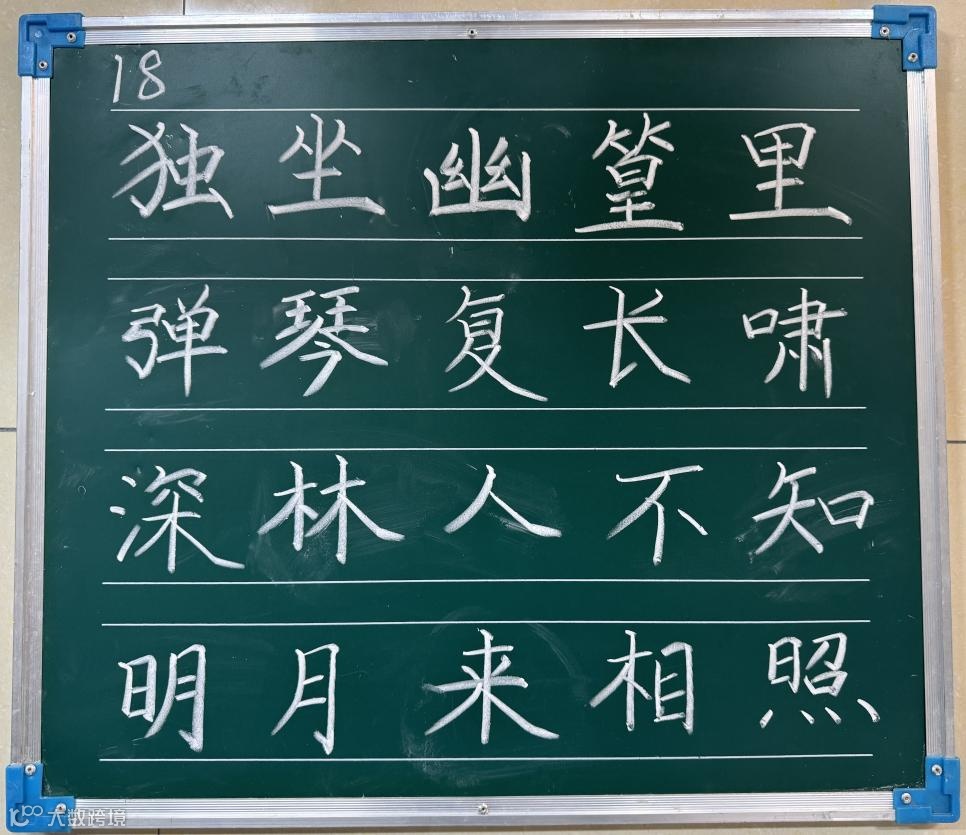 18
独坐幽篁里
弹琴复长啸
深林人不知
明月来相照
大数跨境